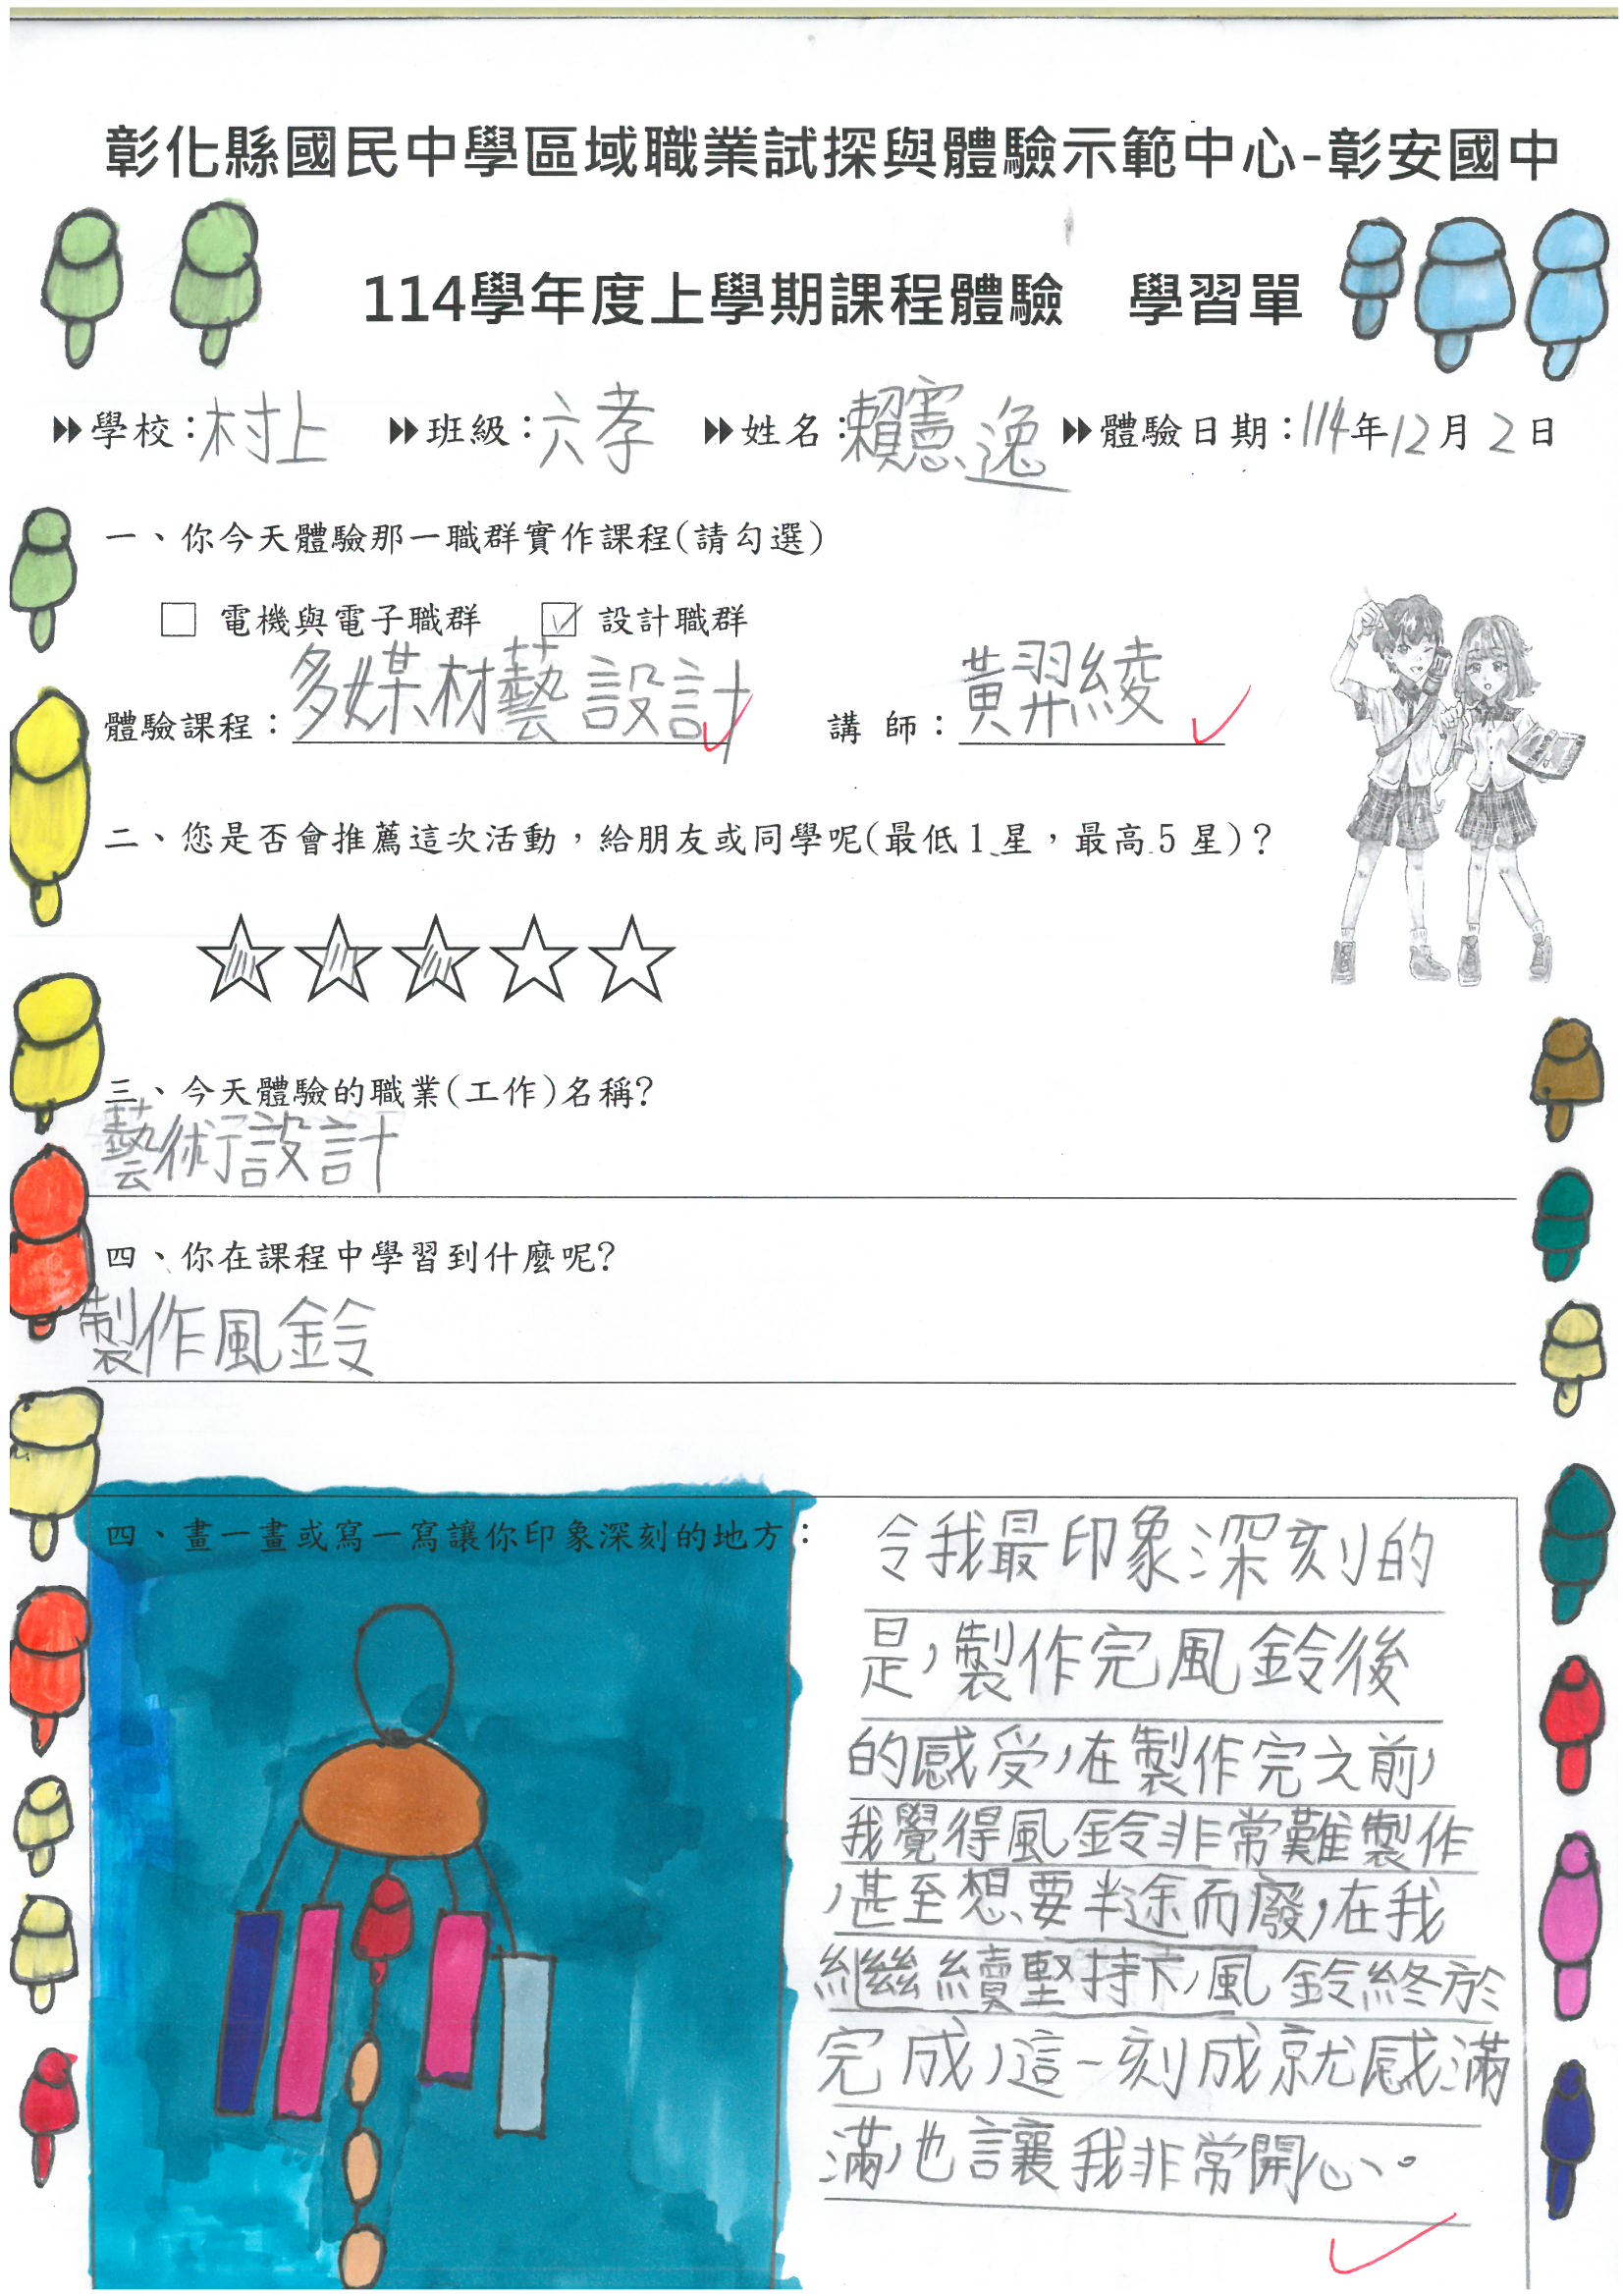 彰化縣國民中學區域職業試探與體驗示範中心-彰安國中
114學年度上學期課程體驗 學習單
學校:村上 班級:六孝 姓名:賴憲逸 體驗日期:114年12月2日
一、你今天體驗那一職群實作課程(請勾選)
電機與電子職群 設計職群
體驗課程:多媒材藝設計 講 師:黃羿綾
二、您是否會推薦這次活動,給朋友或同學呢(最低1星,最高5星)?
三、今天體驗的職業(工作)名稱?
藝術設計
四、你在課程中學習到什麼呢?
製作風鈴
四、畫一畫或寫一寫讓你印象深刻的地方:
令我最印象深刻的
是,製作完風鈴後
的感受,在製作完之前,
我覺得風鈴非常難製作
,甚至想要半途而廢,在我
繼續堅持下,風鈴終於
完成,這一刻成就感滿
滿,也讓我非常開心。